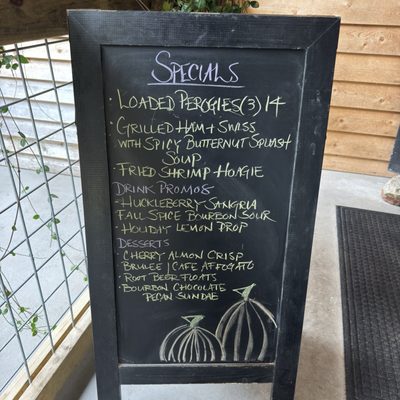 SPECIALS
• LOADED PEROGIES (3) 14
• GRILLED HAM + SWISS
WITH SPICY BUTTERNUT SQUASH
SOUP
• FRIED SHRIMP HOAGIE
DRINK PROMOS
• HUCKLEBERRY SANGRIA
FALL SPICE BOURBON SOUR
• HOLIDAY LEMON DROP
DESSERTS
• CHERRY ALMOND CRISP
• BRULEE | CAFE AFFOGATO
• ROOT BEER FLOATS
• BOURBON CHOCOLATE
PECAN SUNDAE